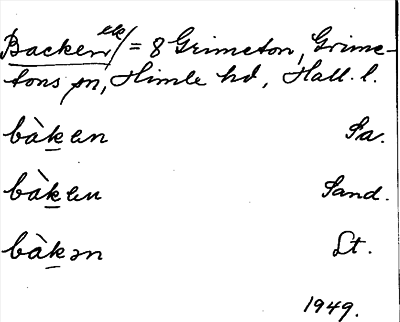 Backen elle/ = 8 Grimeton, Grime-
tons sn, Himle hd, Hall. l.
bàken Sa.
bàken Sand.
bàkən Lt.
1949.